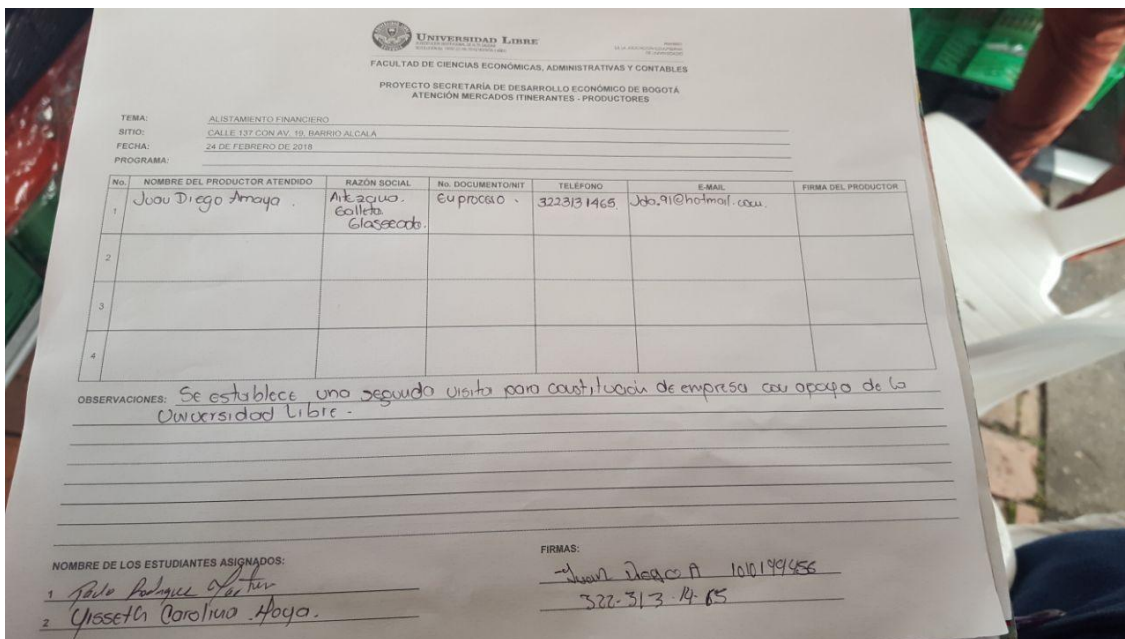 UNIVERSIDAD LIBRE
FACULTAD DE CIENCIAS ECONÓMICAS, ADMINISTRATIVAS Y CONTABLES
PROYECTO SECRETARÍA DE DESARROLLO ECONÓMICO DE BOGOTÁ
ATENCIÓN MERCADOS ITINERANTES - PRODUCTORES
TEMA: ALISTAMIENTO FINANCIERO
SITIO: CALLE 137 CON AV. 19, BARRIO ALCALÁ
FECHA: 24 DE FEBRERO DE 2018
PROGRAMA:
No. NOMBRE DEL PRODUCTOR ATENDIDO RAZÓN SOCIAL No. DOCUMENTO/NIT TELÉFONO E-MAIL FIRMA DEL PRODUCTOR
1 Juan Diego Amaya. Galleta Glaseada. En proceso. 3223131465 Jda.91@hotmail.com.
2
3
4
OBSERVACIONES: Se establece una segunda visita para constitución de empresa con apoyo de la
Universidad Libre.
NOMBRE DE LOS ESTUDIANTES ASIGNADOS: FIRMAS:
1 Rodriguez Juan Diego A
2 Yisseth Carolina 322-313-14-65